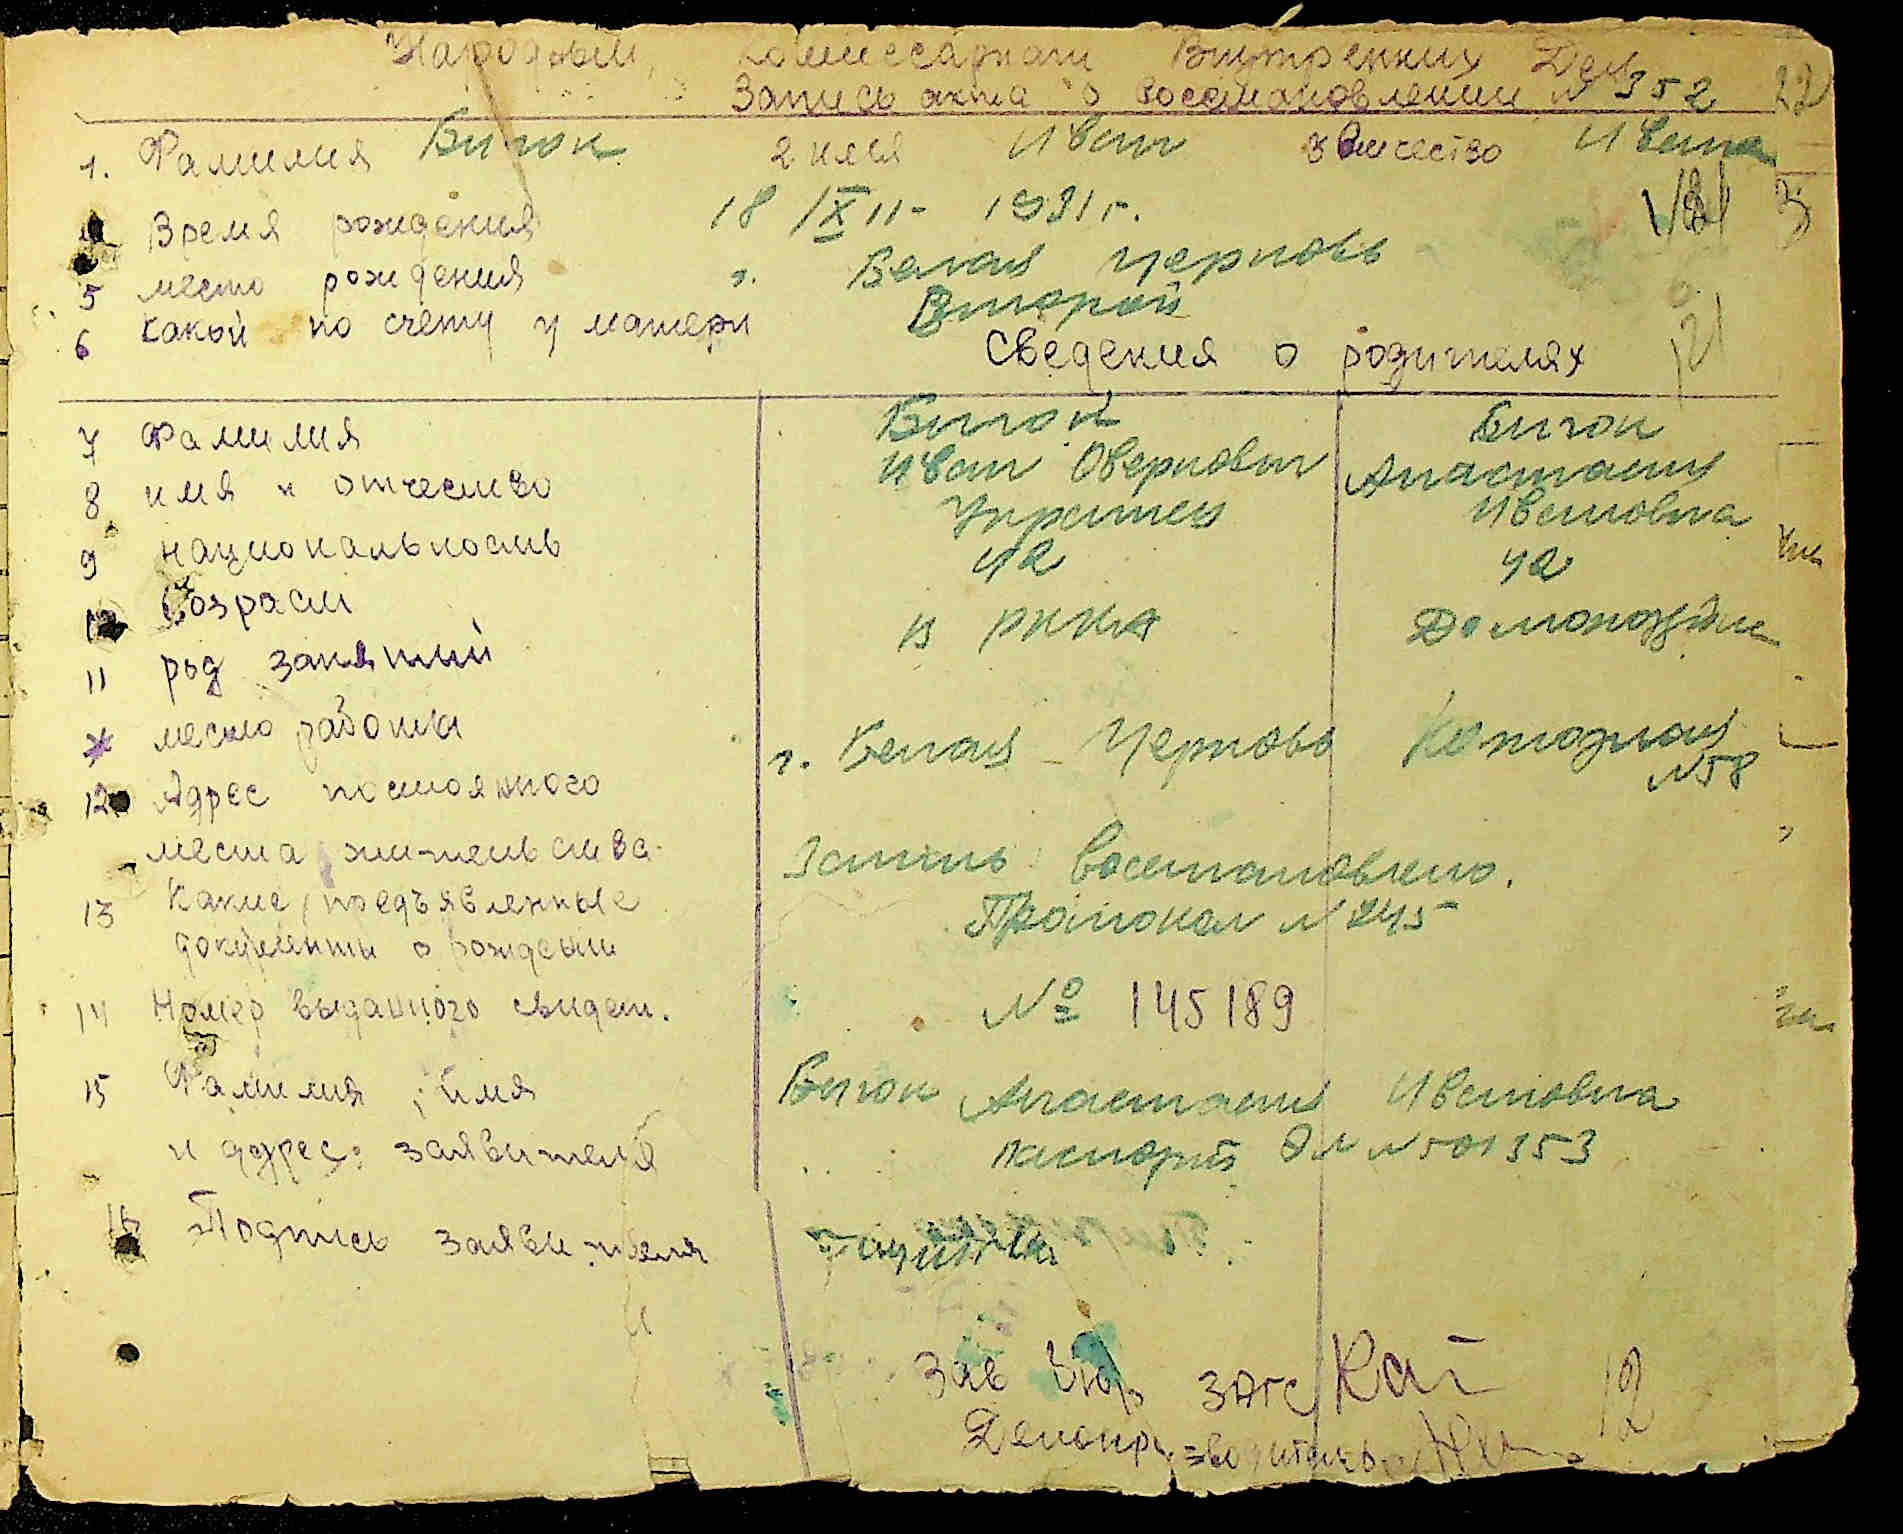 Народный Комиссариат Внутренних Дел
Запись акта о восстановлении N 352 22
1. Фамилия Бигон 2 имя Иван 3 Отчество Ивана
Время рождения 18/XII- 1931 г.
5 место рождения г. Белая Церковь
6 Какой по счету у матери Второй
Сведения о родителях
7 Фамилия Бигон Бигон
8 имя и отчество Иван Анастасия Ивановна
9 национальность Украинец
10 Возраст 42 42
11 род занятий в РККА Домохозяйка
место работы
12 Адрес постоянного г. Белая Церковь N 58
места жительства
Запись восстановлено.
13 Какие предъявленные Протокол N 245
документы о рождении
14 Номер выданного свидет. № 145189
15 Фамилия, имя Бигон Анастасия Ивановна
и адрес: заявителя паспорт N 501353
16 Подпись заявителя
Зав Бюр ЗАГС
Делопроизводитель
12